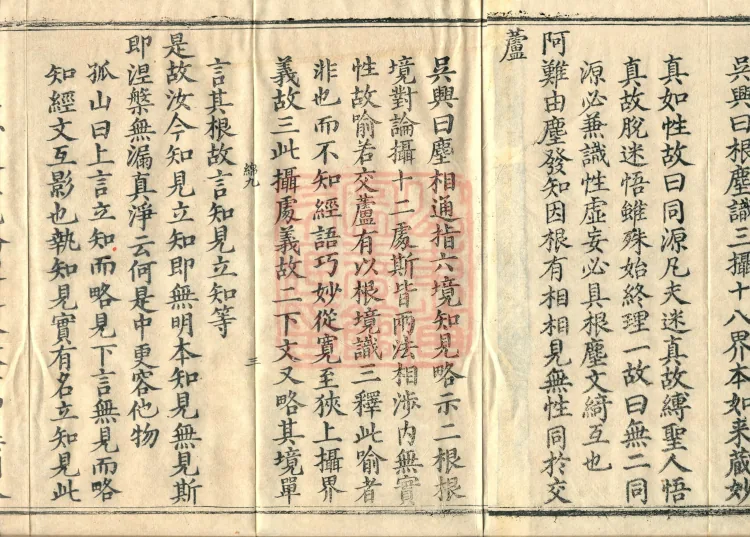 吳興曰根塵識三攝十八界本如来蔵妙
真如性故曰同源凡夫迷真故縛聖人悟
真故脫迷悟雖殊始終理一故曰無二同
源必兼識性虛妄必具根塵文綺互也
阿難由塵發知因根有相相見無性同於交
蘆
吳興曰塵相通指六境知見略示二根根
境對論攝十二處斯皆兩法相涉內無實
性故喻若交蘆有以根境識三釋此喻者
非也而不知經語巧妙從寬至狹上攝界
義故三此攝處義故二下文又略其境單
綿九
三
言其根故言知見立知等
是故汝今知見立知即無明本知見無見斯
即涅槃無漏真淨云何是中更容他物
孤山曰上言立知而略見下言無見而略
知經文互影也執知見實有名立知見此